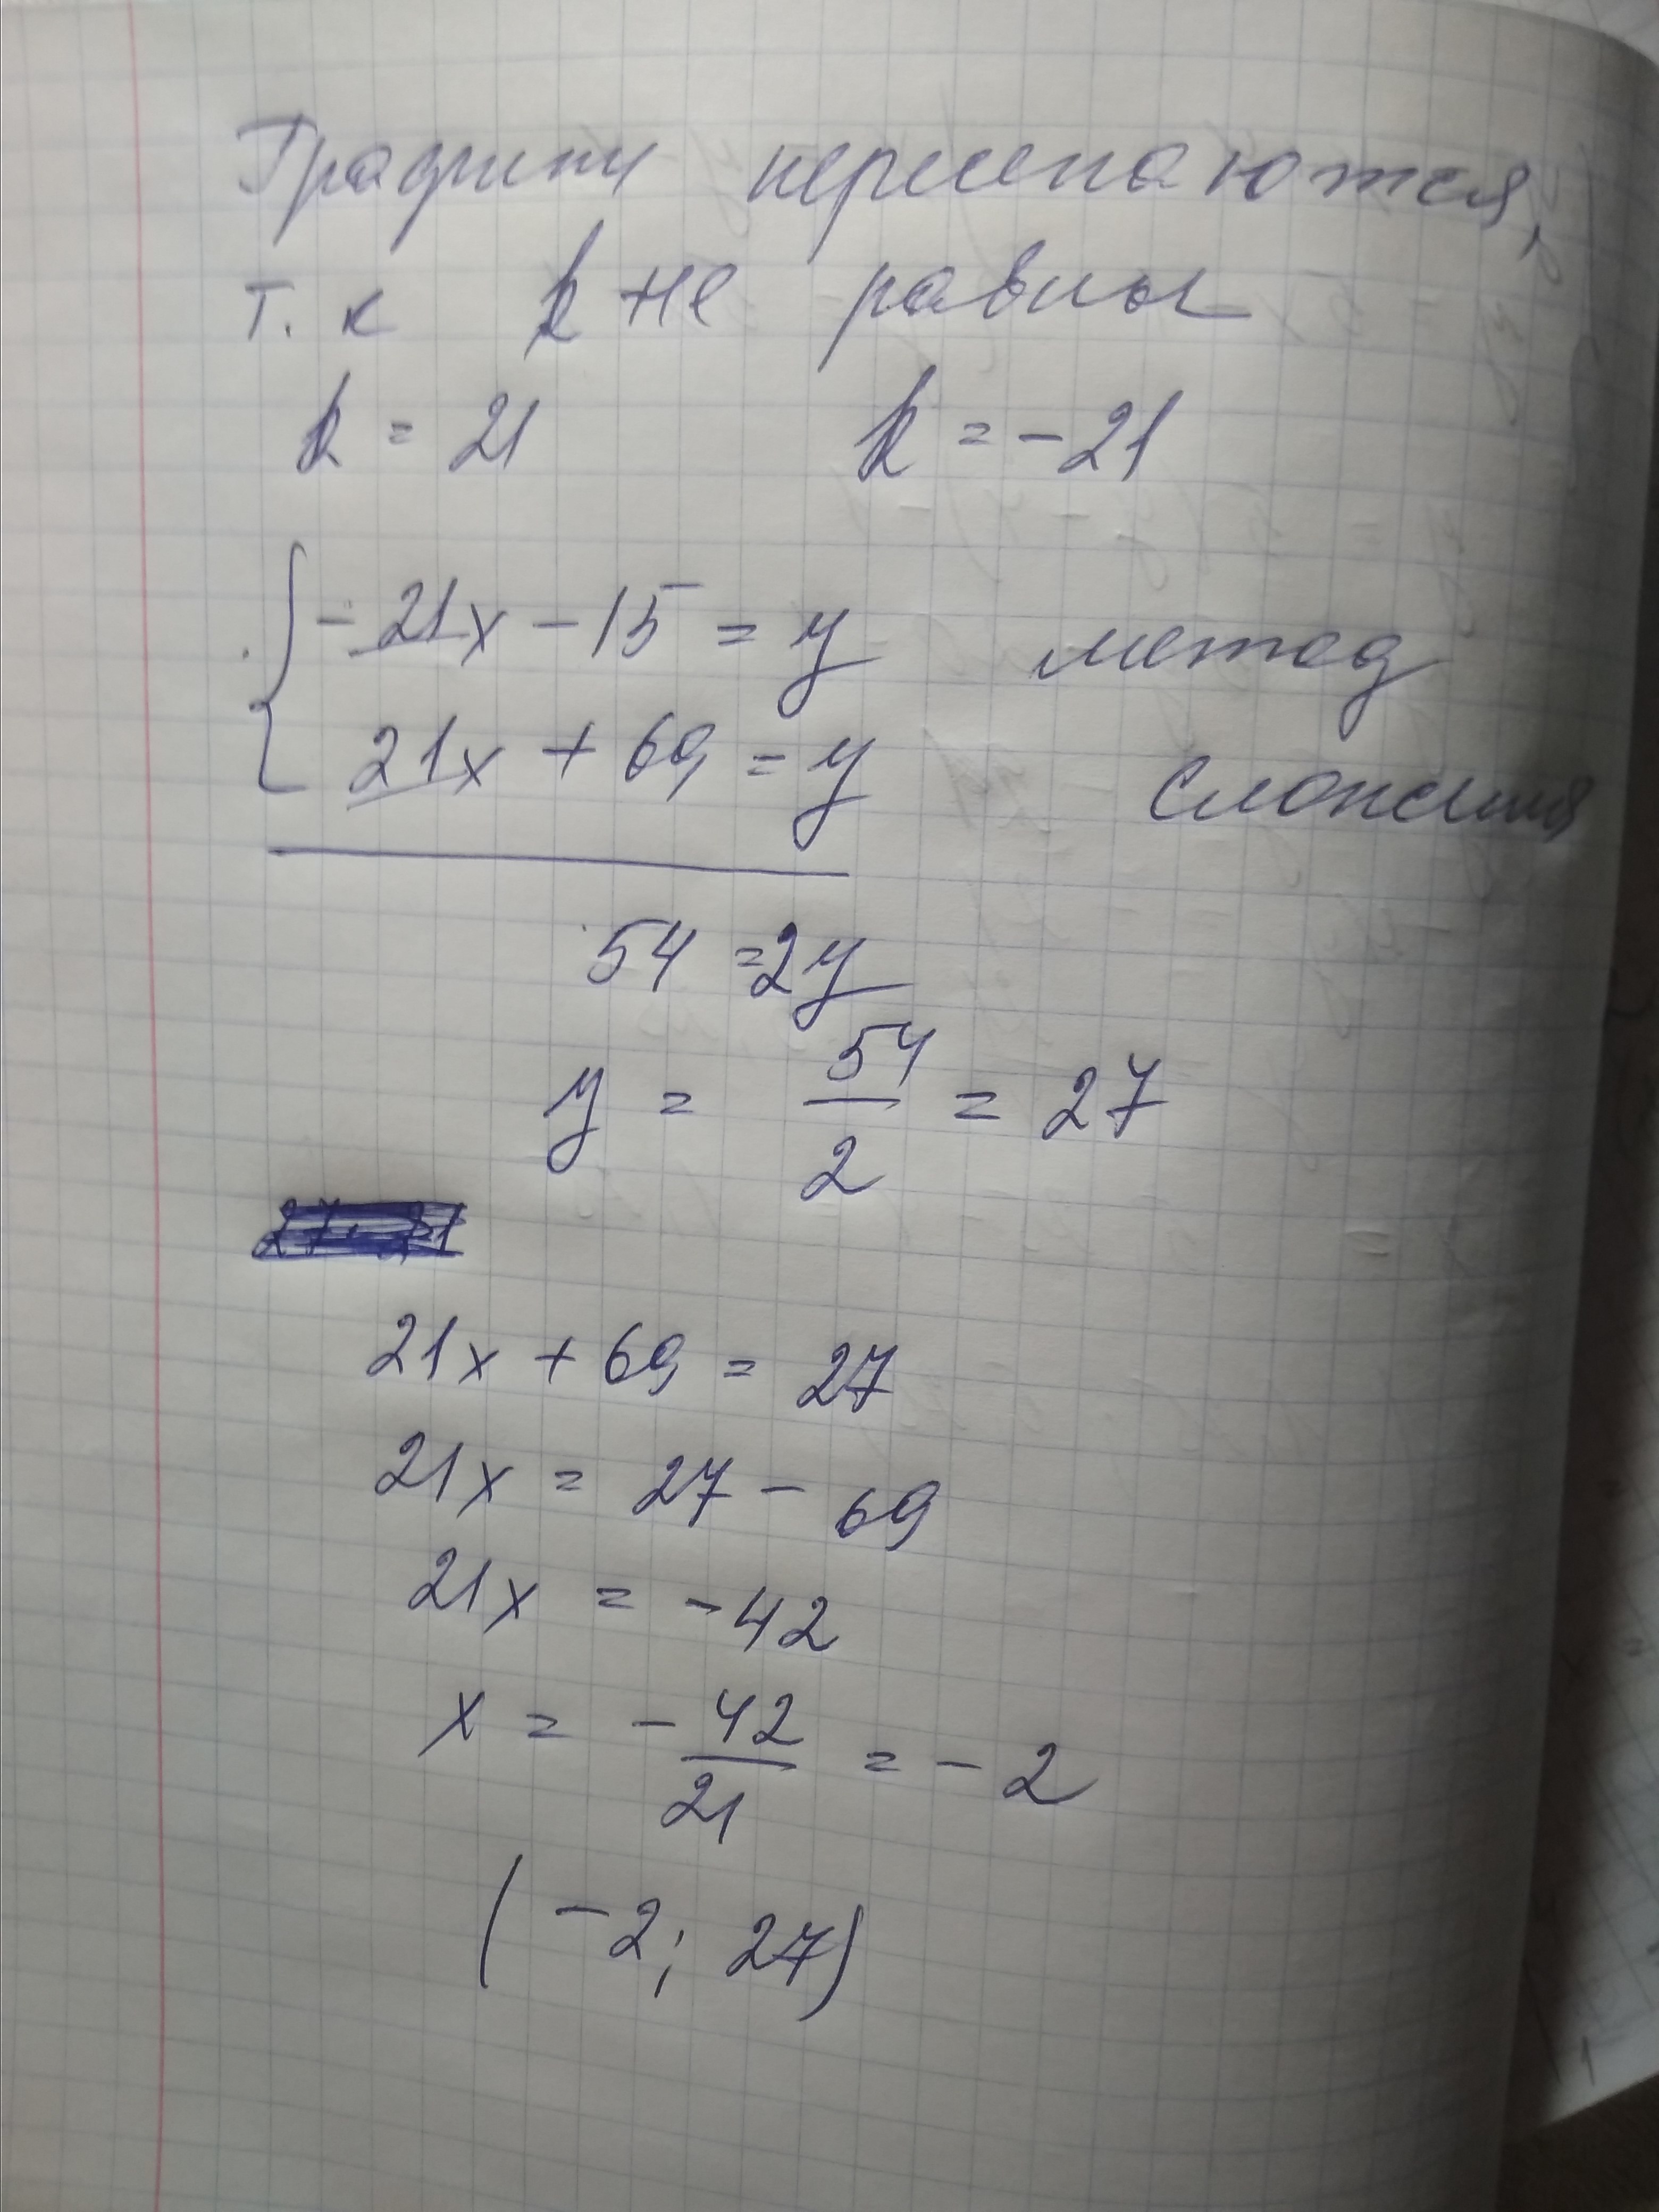 Графики пересекаются,
т. к k не равны
k = 21 k = -21
-21x - 15 = y метод
21x + 69 = y сложения
54 = 2y
y = 54/2 = 27
21x + 69 = 27
21x = 27 - 69
21x = -42
x = -42/21 = -2
(-2; 27)